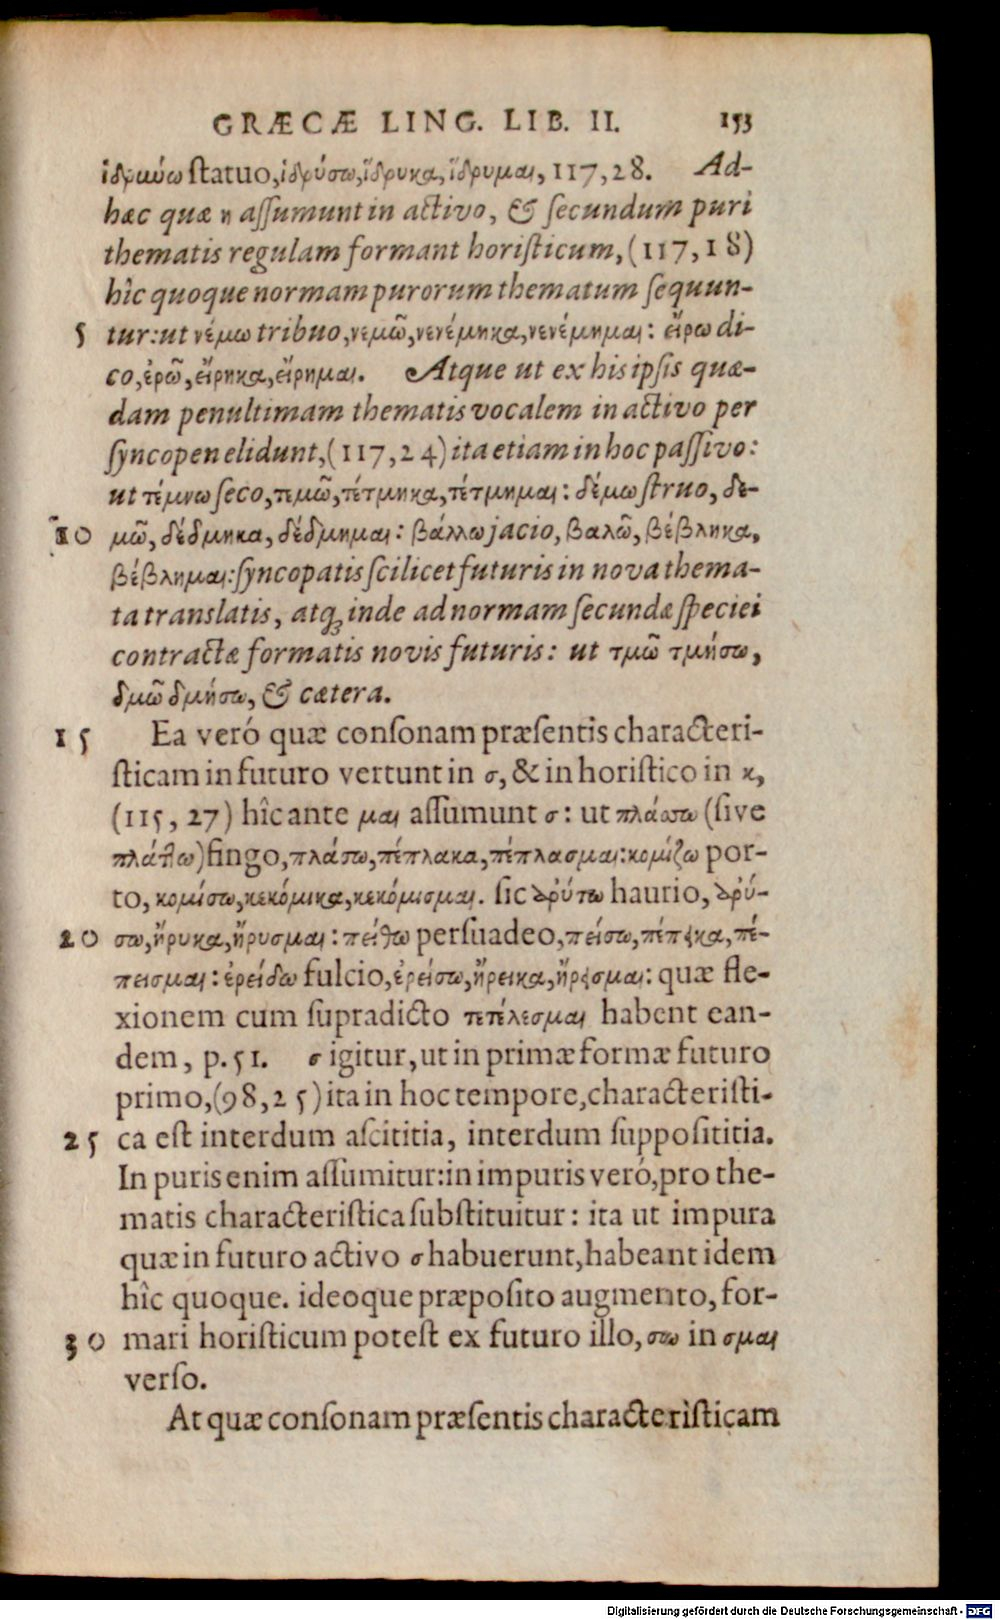 GRÆCÆ LING. LIB. II. 153
ἱδρύω statuo, ἱδρύσω, ἵδρυκα, ἵδρυμαι, 117, 28. Ad-
hæc quæ η assumunt in activo, & secundum puri
thematis regulam formant horisticum, (117, 18)
hîc quoque normam purorum thematum sequun-
5 tur: ut νέμω tribuo, νεμῶ, νενέμηκα, νενέμημαι: εἴρω di-
co, ἐρῶ, εἴρηκα, εἴρημαι. Atque ut ex his ipsis quæ-
dam penultimam thematis vocalem in activo per
syncopen elidunt, (117, 24) ita etiam in hoc passivo:
ut τέμνω seco, τεμῶ, τέτμηκα, τέτμημαι: δέμω struo, δε-
10 μῶ, δέδμηκα, δέδμημαι: βάλλω jacio, βαλῶ, βέβληκα,
βέβλημαι: syncopatis scilicet futuris in nova thema-
ta translatis, atq; inde ad normam secundæ speciei
contractæ formatis novis futuris: ut τμῶ τμήσω,
δμῶ δμήσω, & cætera.
15 Ea veró quæ consonam præsentis characteri-
sticam in futuro vertunt in σ, & in horistico in κ,
(115, 27) hîc ante μαι assumunt σ: ut πλάσσω (sive
πλάττω) fingo, πλάσω, πέπλακα, πέπλασμαι: κομίζω por-
to, κομίσω, κεκόμικα, κεκόμισμαι. sic ἀρύτω haurio, ἀρύ-
20 σω, ἤρυκα, ἤρυσμαι: πείθω persuadeo, πείσω, πέπεικα, πέ-
πεισμαι: ἐρείδω fulcio, ἐρείσω, ἤρεικα, ἤρεισμαι: quæ fle-
xionem cum supradicto τετέλεσμαι habent ean-
dem, p. 51. σ igitur, ut in primæ formæ futuro
primo, (98, 25) ita in hoc tempore, characteristi-
25 ca est interdum ascititia, interdum supposititia.
In puris enim assumitur: in impuris veró, pro the-
matis characteristica substituitur: ita ut impura
quæ in futuro activo σ habuerunt, habeant idem
hîc quoque. ideoque præposito augmento, for-
30 mari horisticum potest ex futuro illo, σω in σμαι
verso.
At quæ consonam præsentis characteristicam
Digitalisierung gefördert durch die Deutsche Forschungsgemeinschaft - DFG